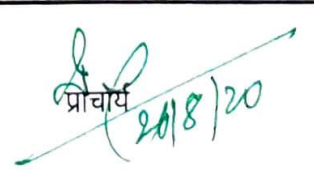 प्राचार्य
26/8/20